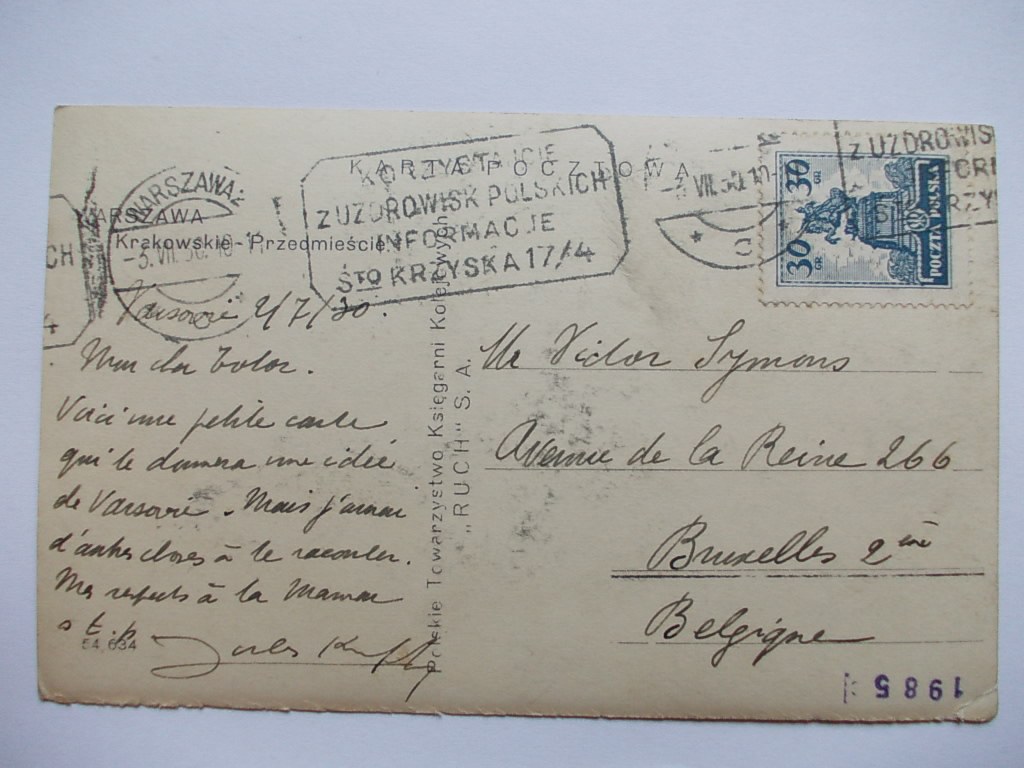 KARTA POCZTOWA
WARSZAWA
Krakowskie-Przedmieście
WARSZAWA 2
-3.VII 30.10
KORZYSTAJCIE
Z UZDROWISK POLSKICH
INFORMACJE
ŚTO KRZYSKA 17/4
CH
4
Z UZDROWIS
-3 VII.30.10-
30 GR
30 GR
POCZTA POLSKA
Varsovie 2/7/30.
Mon cher Totor.
Voici une petite carte
qui te donnera une idée
de Varsovie. Mais j'aurai
d'autres choses à te raconter.
Mes respects à ta Maman
Jules
54,634
Polskie Towarzystwo Księgarni Kolejowych
„RUCH" S. A.
Mr Victor Symons
Avenue de la Reine 266
Bruxelles 2me
Belgique
1985